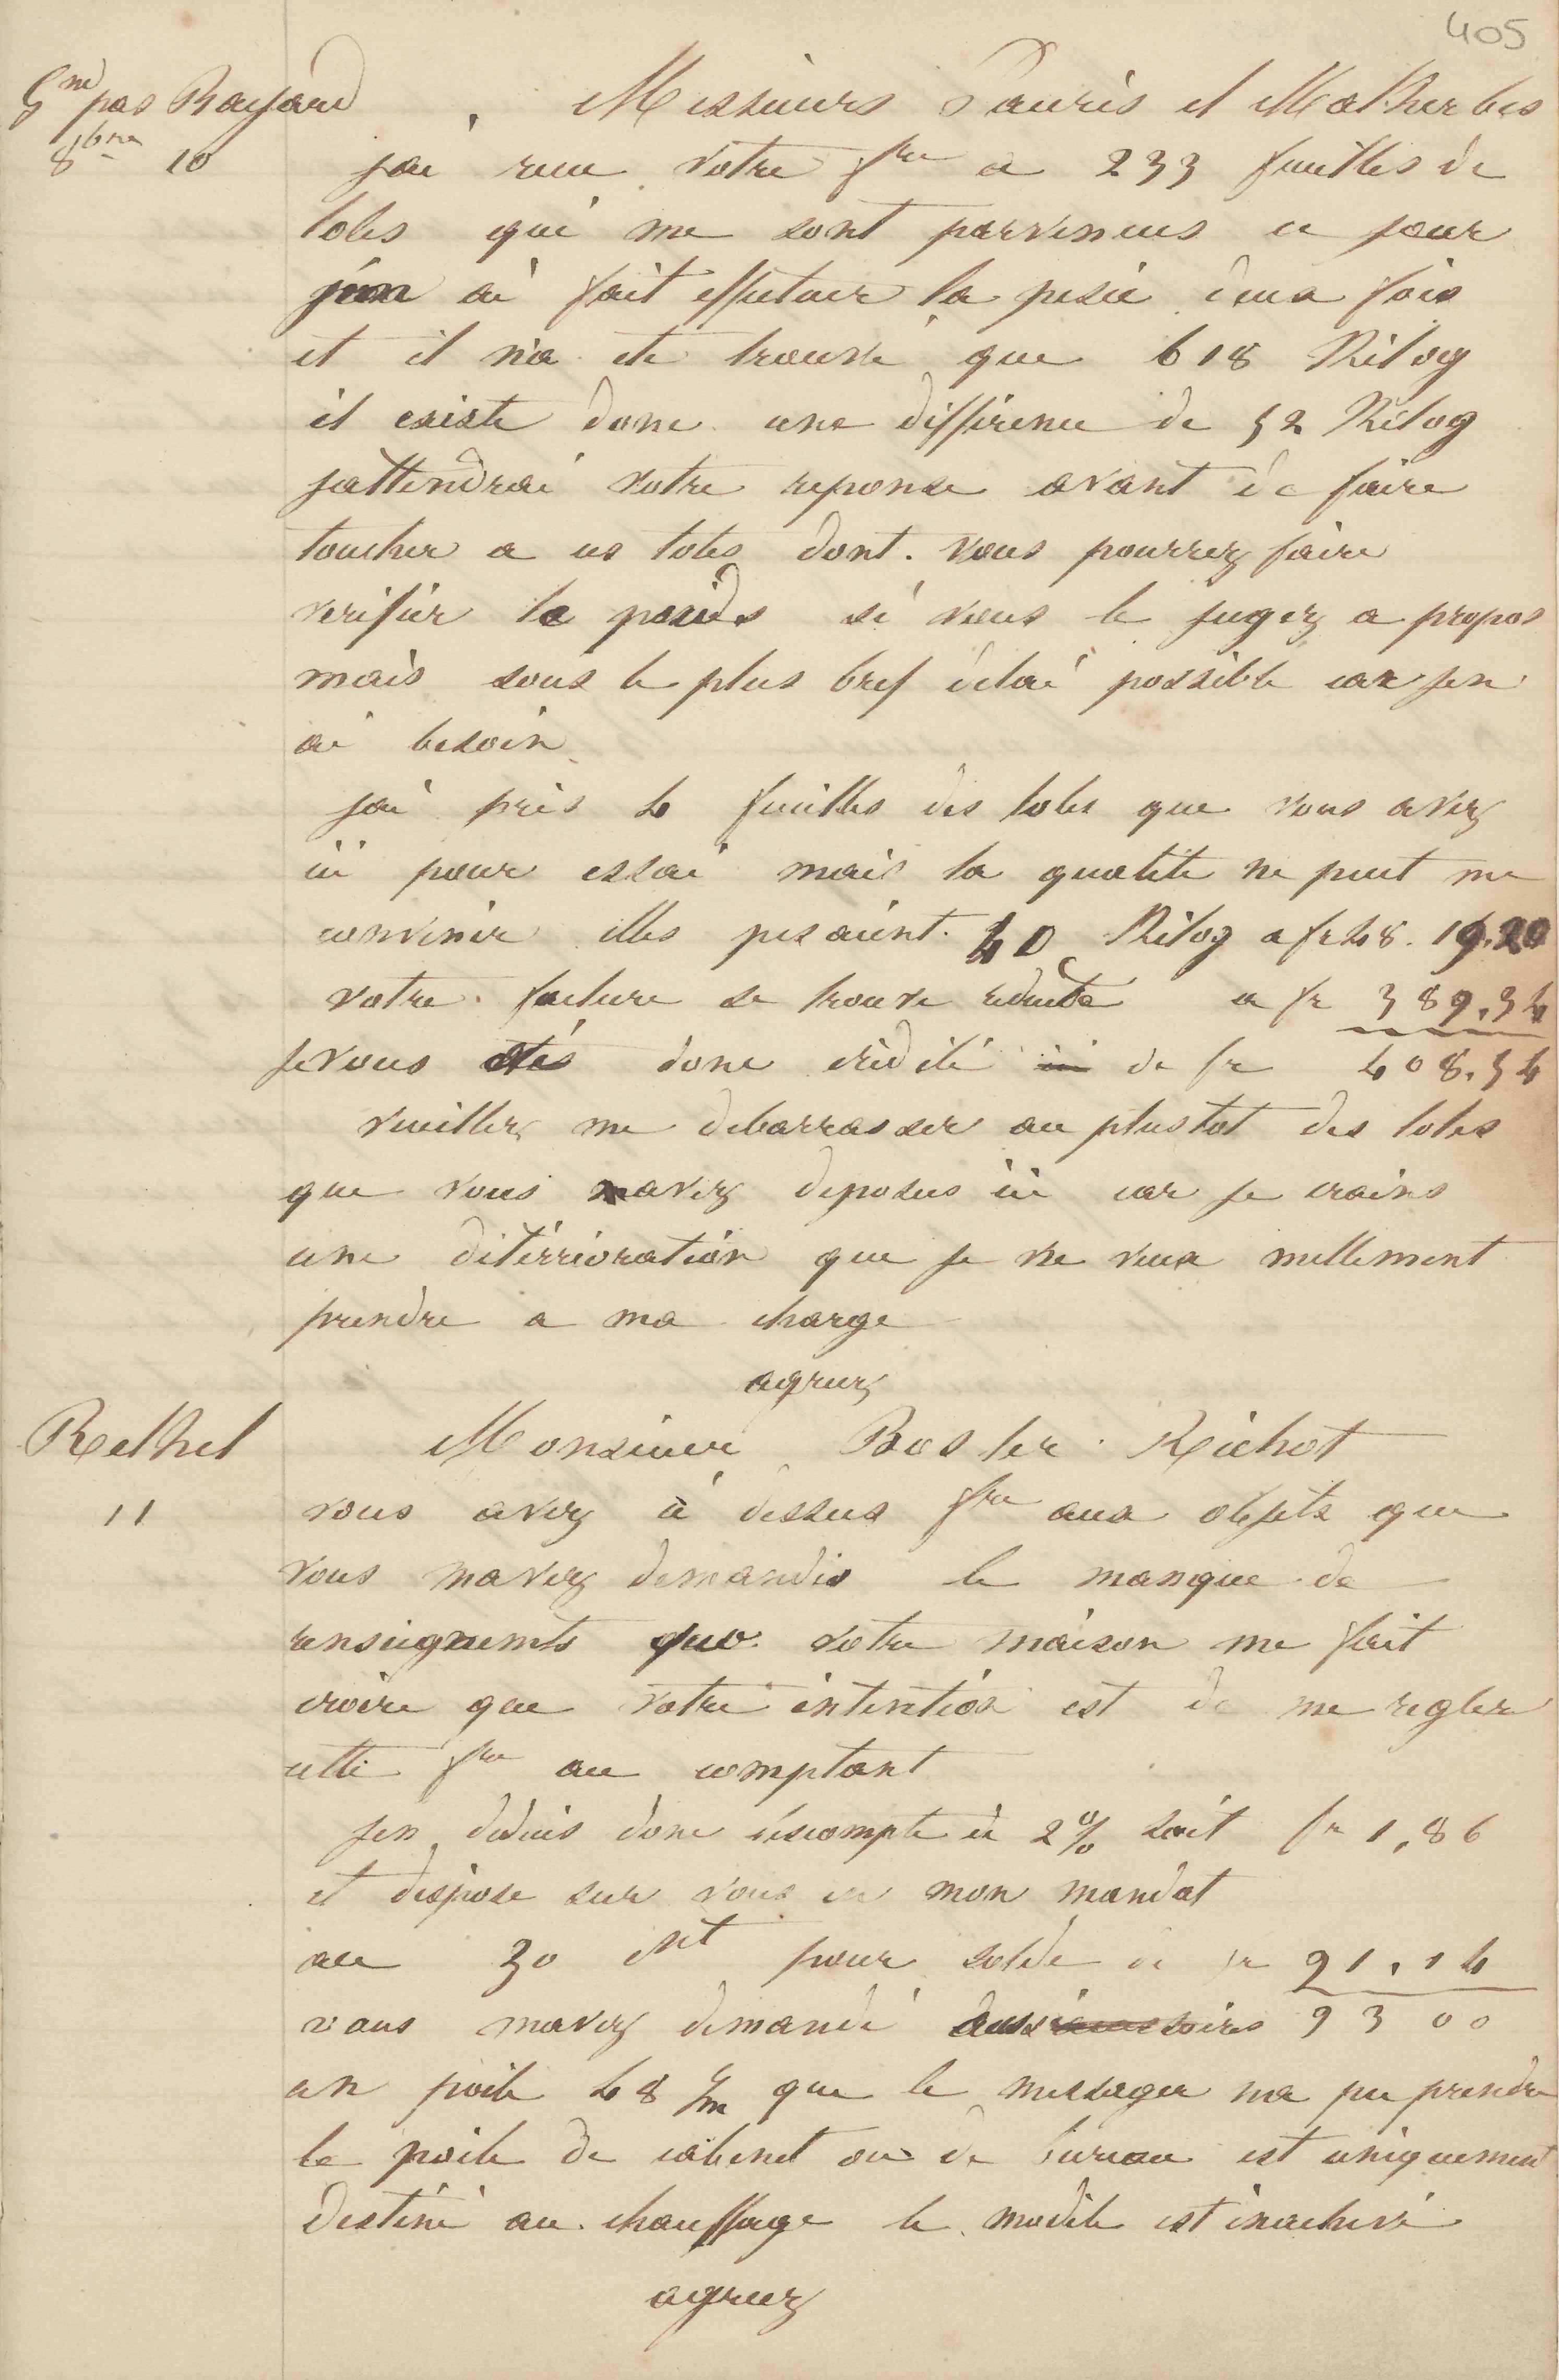 405
Gnd pas Bayard Messieurs Pauris et Matherbes
8bre 10 jai recu votre fre a 233 feuilles de
toles qui me sont parvenues ce jour
jen ai fait effectuer la pesée deux fois
et il n'a ete trouvé que 618 Kilog
il existe donc une difference de 52 Kilog
jattendrai votre reponse avant de faire
toucher a ces toles dont vous pourrez faire
verifier le poids si vous le jugez a propos
mais sous le plus bref delai possible car jen
ai besoin
jai pris 4 feuilles des toles que vous avez
ici pour essai mais la qualité ne peut me
convenir elles pesaient 40 Kilog a fr 48. 19.20
votre facture se trouve reduite a fr 389.34
je vous donc crédité de fr 408.54
veuillez me debarrasser au plustot des toles
que vous avez deposées ici car je crains
une détérrioration que je ne veux nullement
prendre a ma charge
agreez
Rethel Monsieur Richot
11 vous avez ci dessus fre aux objets que
vous mavez demandés le manque de
renseignements votre maison me fait
croire que votre intention est de me regler
cette fre au comptant
jen deduis donc éscompte à 2% soit fr 1,86
et dispose sur vous en mon mandat
au 30 ct pour solde de fr 91.14
vous mavez demandé 93 00
un poele 48 c/m que le messager na pu prendre
le poele de cabinet ou de bureau est uniquement
destiné au chauffage le modele est inachevé
agreez